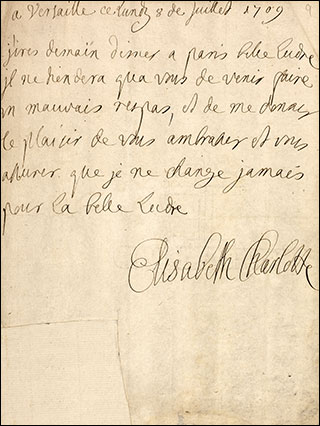 a Versaille ce lundy 8 de Juillet 1709
j'ires demain disner a paris belle Ludre
il ne tiendera qua vous de venir faire
un mauvais repas, et de me donner
le plaisir de vous ambrasser et vous
assurer que je ne change jamais
pour la belle Ludre
Elisabeth Charlotte